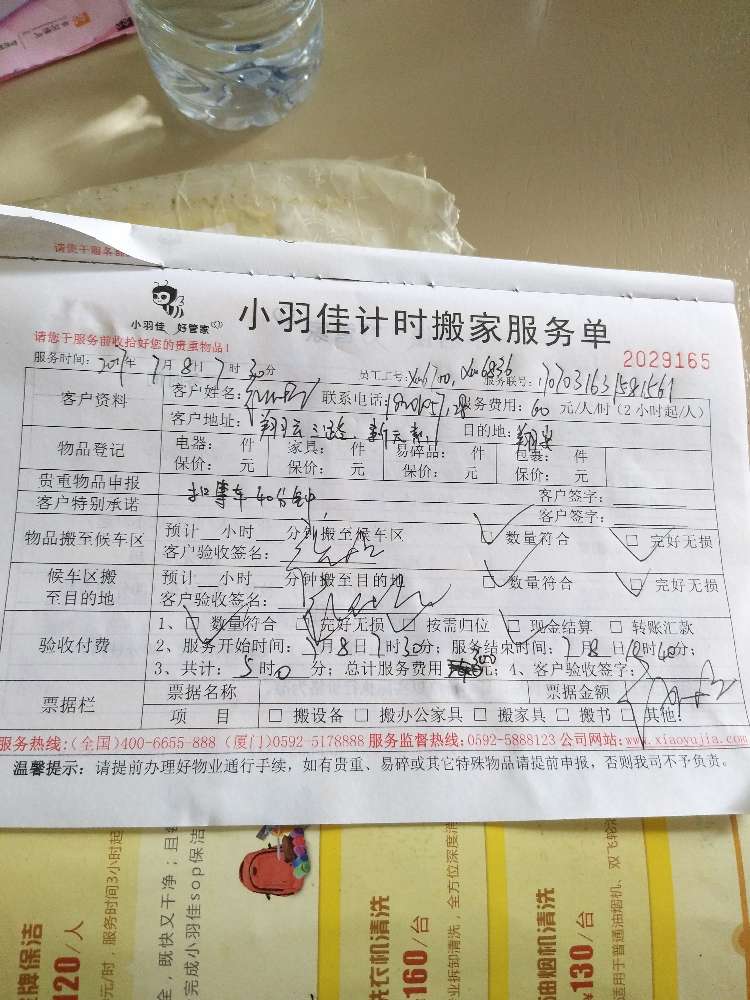 请您于服务前
小羽佳 好管家
小羽佳计时搬家服务单
请您于服务前收拾好您的贵重物品!
2029165
服务时间: 年 7月8日7时30分 员工工号: 服务联号:
客户资料 客户姓名: 联系电话: 服务费用: 60 元/人/时(2小时起/人)
客户地址: 目的地:
物品登记 电器: 件 家具: 件 易碎品: 件 包裹: 件
保价: 元 保价: 元 保价: 元 保价: 元
贵重物品申报 客户签字:
扣 车40分钟
客户特别承诺 客户签字:
物品搬至候车区 预计__小时__分钟搬至候车区 □数量符合 □完好无损
客户验收签名:
候车区搬至目的地 预计__小时__分钟搬至目的地 □数量符合 □完好无损
客户验收签名:
验收付费 1、□数量符合 □完好无损 □按需归位 □现金结算 □转账汇款
2、服务开始时间: 7月8日7时30分; 服务结束时间: 7月8日 时40分;
3、共计: 5时0分; 总计服务费用 元; 4、客户验收签字:
票据栏 票据名称 票据金额
项 目 □搬设备 □搬办公家具 □搬家具 □搬书 □其他:
服务热线:(全国)400-6655-888 (厦门)0592-5178888 服务监督热线:0592-5888123 公司网站:www.xiaoyujia.com
温馨提示: 请提前办理好物业通行手续, 如有贵重、易碎或其它特殊物品请提前申报, 否则我司不予负责。
牌保洁
120/人
元/时, 服务时间3小时起
全, 既快又干净; 且
完成小羽佳sop保洁
洗衣机清洗
160/台
业拆卸清洗, 全方位深度清
油烟机清洗
¥130/台
适用于普通油烟机、双飞轮